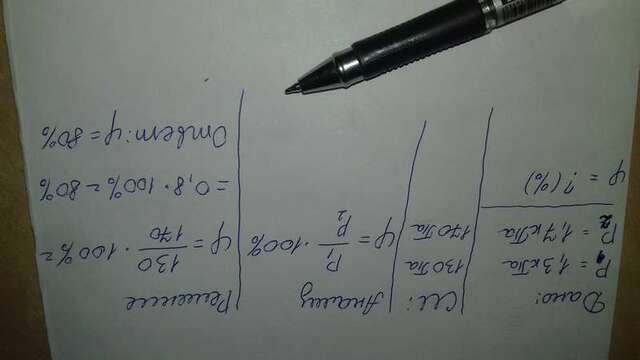 Дано:
P₁ = 1,3кПа
P₂ = 1,7кПа
φ = ? (%)
СИ:
130Па
170Па
Анализ
φ = P₁/P₂ · 100%
Решение
φ = 130/170 · 100% =
= 0,8 · 100% = 80%
Ответ: φ = 80%